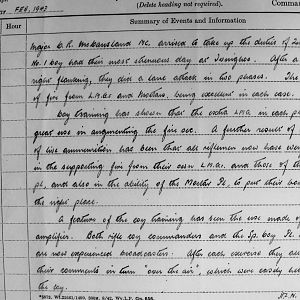 (Delete heading not required).
Comma
FEB, 1943
Hour
Summary of Events and Information
Major C.R. McCausland MC. arrives to take up the duties of 2n
No. 1 Coy had their most strenuous day at Tsunghos. After a
night planning, they did a lane attack in two phases. The
of fire from L.M.Gs. and Mortars, being excellent in each case.
Coy training has shown that the extra L.M.G. in each pl
great use in augmenting the fire sec. A further result of
of live ammunition has been that all riflemen now have were
in the supporting fire from their own L.M.Gs. and those of th
pl, and also in the ability of the Mortar Pl. to put their bom
the right place.
A feature of the coy training has been the use made of
amplifier. Both rifle coy commanders and the Sp. Coy Pl.
are now experienced broadcasters. After each exercise they all
their comments in turn "over the air", which were easily he
the coy.